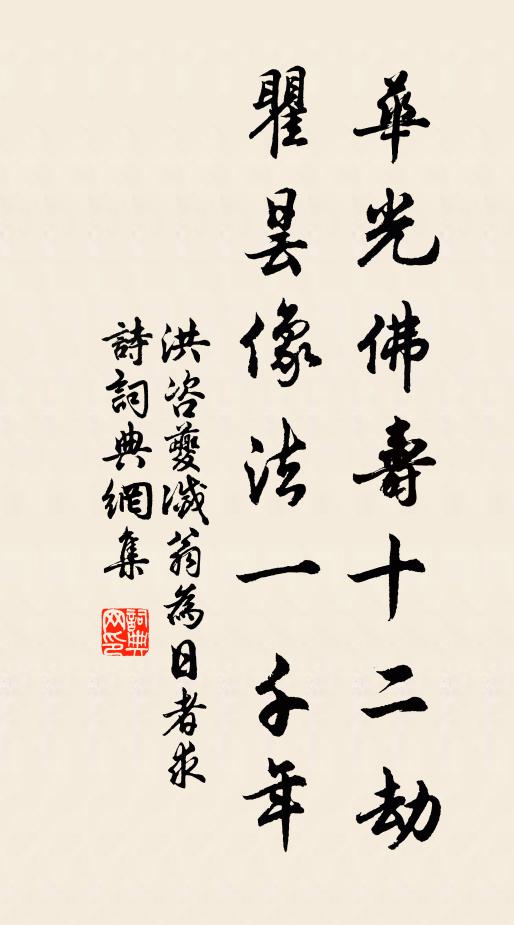 華光佛壽十二劫
瞿曇像法一千年
洪咨夔滅翁為日者求
詩詞典網集
詞典
网印